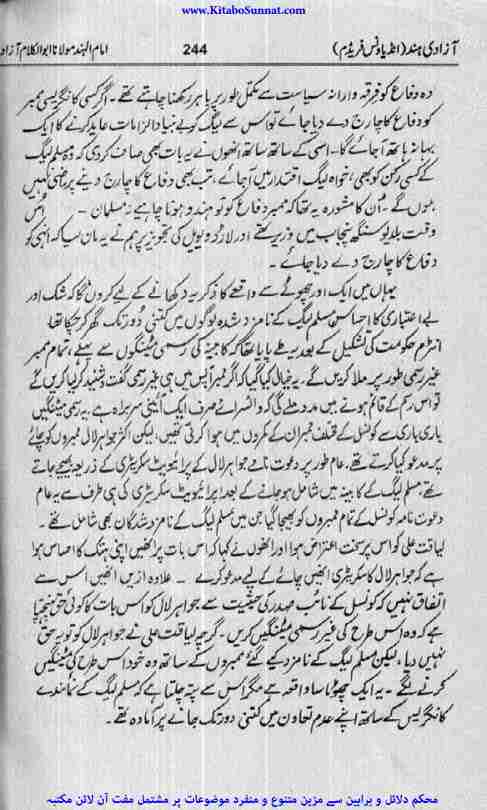 www.KitaboSunnat.com
آزادیِ ہند (انڈیا ونس فریڈم) 244 امام الہند مولانا ابوالکلام آزاد
وہ دفاع کو فرقہ وارانہ سیاست سے مکمل طور پر باہر رکھنا چاہتے تھے ۔ اگر کسی کانگریسی ممبر
کو دفاع کا چارج دے دیا جائے تو اس سے لیگ کو بے بنیاد الزامات عاید کرنے کا ایک
بہانہ ہاتھ آجائے گا۔ اسی کے ساتھ ساتھ انھوں نے یہ بات بھی صاف کردی کہ وہ مسلم لیگ
کے کسی رکن کو بھی، خواہ لیگ اقتدار میں آجائے، تب بھی دفاع کا چارج دینے پر راضی نہیں
ہوں گے ۔ اُن کا مشورہ یہ تھا کہ ممبر دفاع کو تو ہندو ہونا چاہیے نہ مسلمان ۔ اُس
وقت بلدیو سنگھ پنجاب میں وزیر تھے اور لارڈ ویول کی تجویز پر ہم نے یہ مان لیا کہ انہی کو
دفاع کا چارج دے دیا جائے ۔
یہاں میں ایک اور چھوٹے سے واقعے کا ذکر یہ دکھانے کے لیے کروں گا کہ شک اور
بے اعتباری کا احساس مسلم لیگ کے نامزد شدہ لوگوں میں کتنی دُور تک گھر کر چکا تھا
انٹرم حکومت کی تشکیل کے بعد یہ طے پایا تھا کہ کابینہ کی رسمی میٹنگوں سے پہلے، تمام ممبر
غیر رسمی طور پر ملا کریں گے ۔ یہ خیال کیا گیا کہ اگر ممبر آپس میں ہی غیر رسمی گفت و شنید کرلیا کریں گے
تو اس رسم کے قائم ہونے میں مدد ملے گی کہ وائسرائے صرف ایک آئینی سربراہ ہے ۔ یہ رسمی میٹنگیں
باری باری سے کونسل کے مختلف ممبران کے کمروں میں ہوا کرتی تھیں، لیکن اکثر جواہر لال ممبروں کو چائے
پر مدعو کیا کرتے تھے ۔ عام طور پر دعوت نامے جواہر لال کے پرائیویٹ سکریٹری کے ذریعہ بھیجے جاتے
تھے، مسلم لیگ کے کابینہ میں شامل ہو جانے کے بعد پرائیویٹ سکریٹری کی ہی طرف سے یہ عام
دعوت نامہ کونسل کے تمام ممبروں کو بھیجا گیا جن میں مسلم لیگ کے نامزد شدگان بھی شامل تھے ۔
لیاقت علی کو اس پر سخت اعتراض ہوا اور انھوں نے کہا کہ اس بات پر انھیں اپنی ہتک کا احساس ہوا
ہے کہ جواہر لال کا سکریٹری انھیں چائے کے لیے مدعو کرے ۔ علاوہ ازیں انھیں اس سے
اتفاق نہیں کہ کونسل کے نائب صدر کی حیثیت سے جواہر لال کو اس بات کا کوئی حق پہنچتا
ہے کہ وہ اس طرح کی غیر رسمی میٹنگیں کریں ۔ گرچہ لیاقت علی نے جواہر لال کو تو یہ حق
نہیں دیا، لیکن مسلم لیگ کے نامزد کیے گئے ممبروں کے ساتھ وہ خود اس طرح کی میٹنگیں
کرنے لگے ۔ یہ ایک چھوٹا سا واقعہ ہے مگر اُس سے پتہ چلتا ہے کہ مسلم لیگ کے نمائندے
کانگریس کے ساتھ اپنے عدم تعاون میں کتنی دُور تک جانے پر آمادہ تھے ۔
محکم دلائل و براہین سے مزین متنوع و منفرد موضوعات پر مشتمل مفت آن لائن مکتبہ